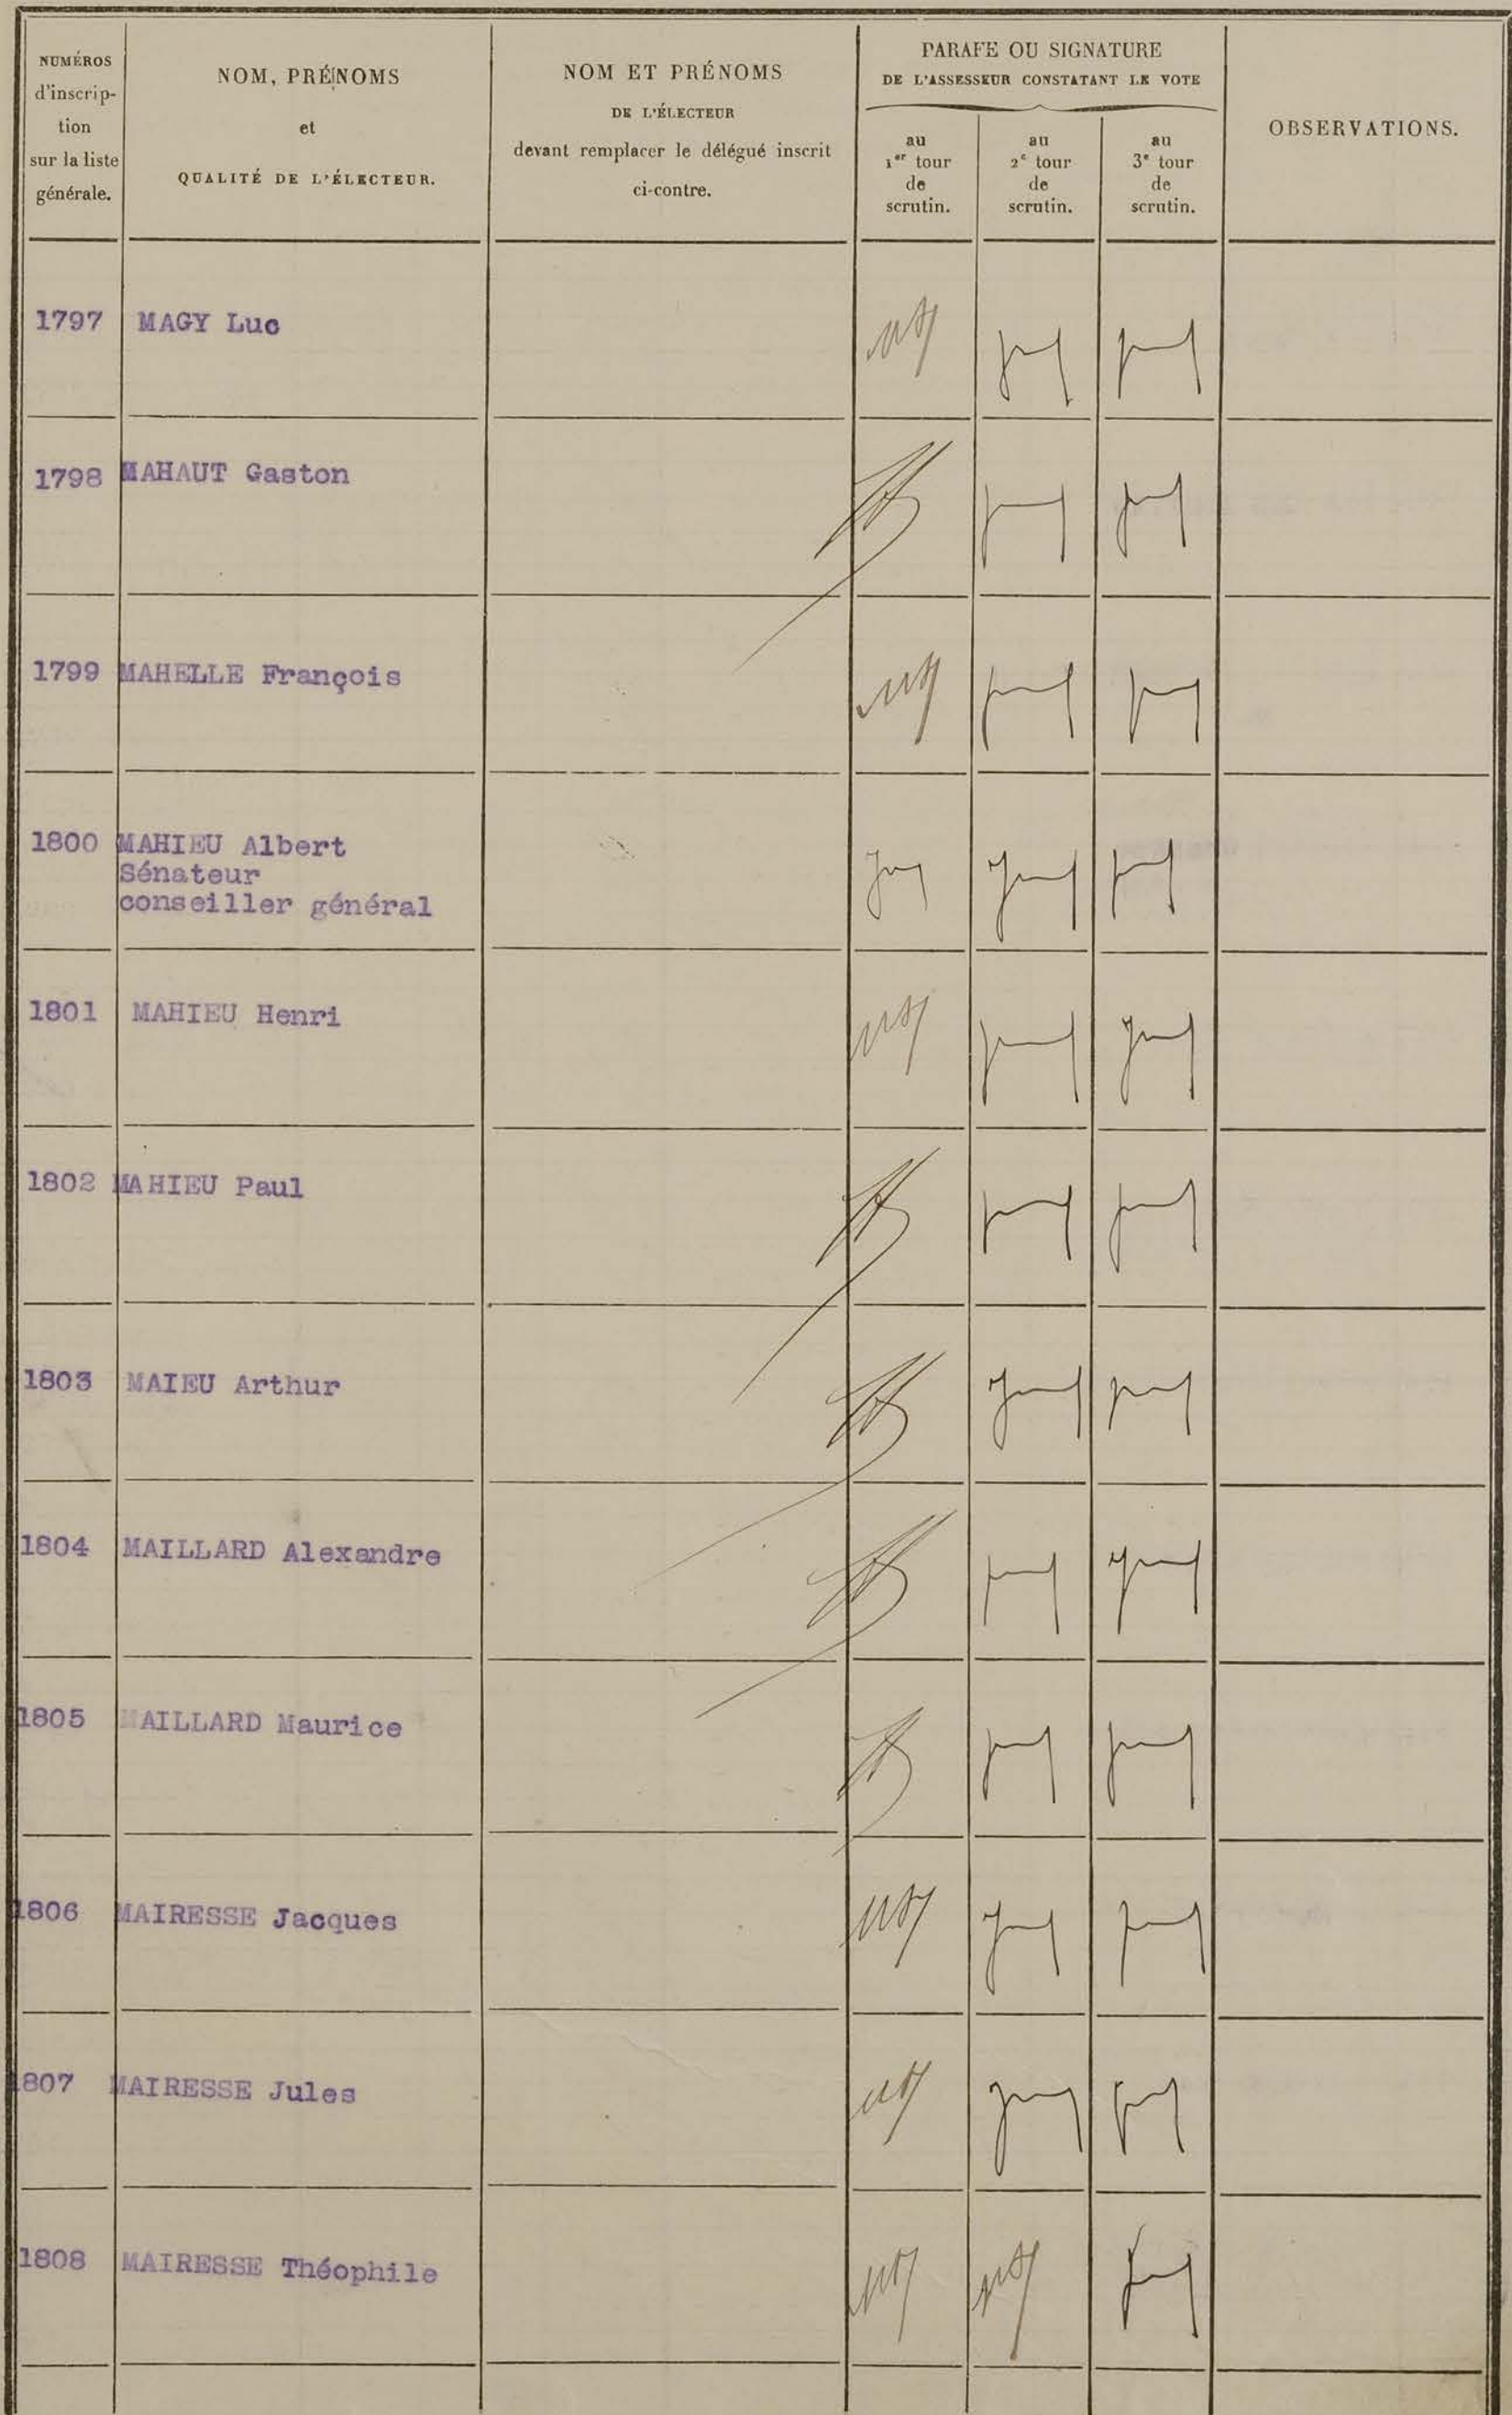 NUMÉROS
d'inscrip-
tion
sur la liste
générale.
NOM, PRÉNOMS
et
QUALITÉ DE L'ÉLECTEUR.
NOM ET PRÉNOMS
DE L'ÉLECTEUR
devant remplacer le délégué inscrit
ci-contre.
PARAFE OU SIGNATURE
DE L'ASSESSEUR CONSTATANT LE VOTE
au
1er tour
de
scrutin.
au
2e tour
de
scrutin.
au
3e tour
de
scrutin.
OBSERVATIONS.
1797 MAGY Luc
1798 MAHAUT Gaston
1799 MAHELLE François
1800 MAHIEU Albert
Sénateur
conseiller général
1801 MAHIEU Henri
1802 MAHIEU Paul
1803 MAIEU Arthur
1804 MAILLARD Alexandre
1805 MAILLARD Maurice
1806 MAIRESSE Jacques
1807 MAIRESSE Jules
1808 MAIRESSE Théophile